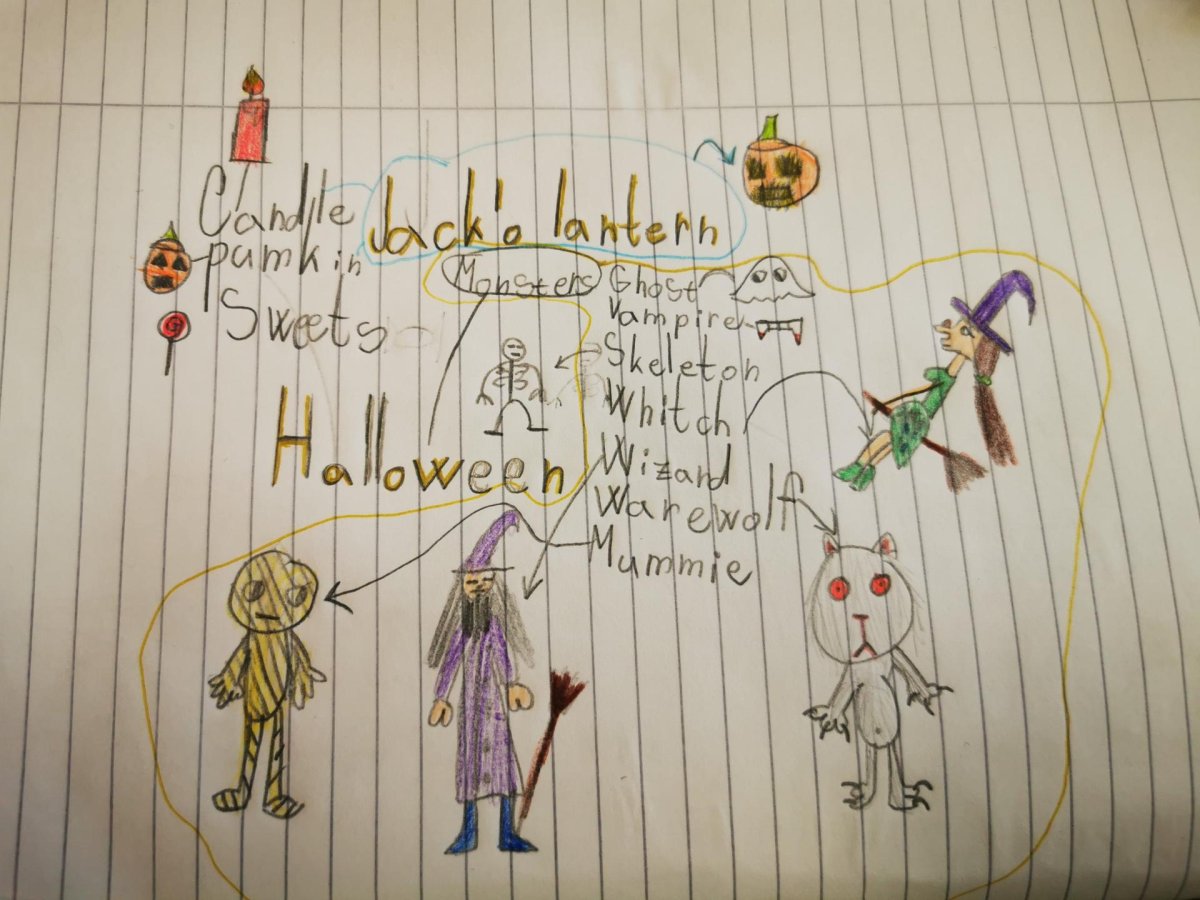 Candle
pumkin
Sweets
Jack'o lantern
Monsters
Ghost
Vampire
Skeleton
Whitch
Wizard
Warewolf
Mummie
Halloween